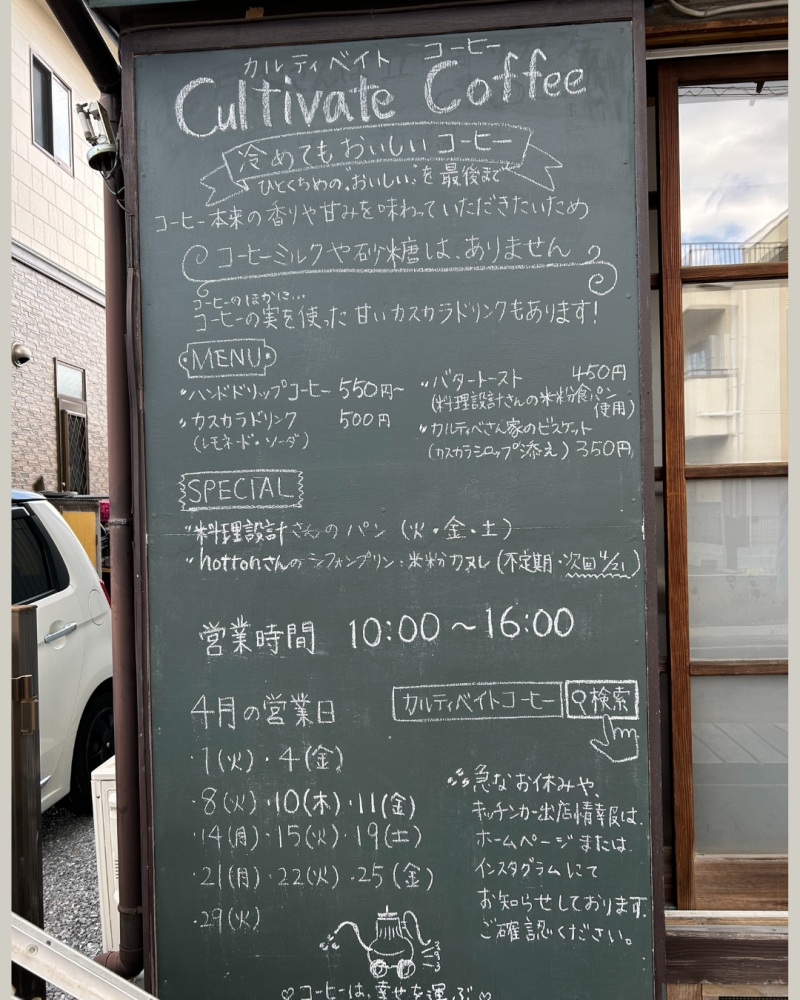 カルティベイト コーヒー
Cultivate Coffee
冷めてもおいしいコーヒー
ひとくちめの"おいしい"を最後まで
コーヒー本来の香りや甘みを味わっていただきたいため
コーヒーミルクや砂糖は、ありません
コーヒーのほかに…
コーヒーの実を使った甘いカスカラドリンクもあります!
MENU
・ハンドドリップコーヒー 550円~
・カスカラドリンク 500円
(レモネード・ソーダ)
・バタートースト 450円
(料理設計さんの米粉食パン
使用)
・カルティベさん家のビスケット
(カスカラシロップ添え) 350円
SPECIAL
・料理設計さんのパン (火・金・土)
・hottonさんのシフォンプリン・米粉カヌレ (不定期・次回4/21)
営業時間 10:00~16:00
カルティベイトコーヒー 検索
4月の営業日
・1(火)・4(金)
・8(火)・10(木)・11(金)
・14(月)・15(火)・19(土)
・21(月)・22(火)・25(金)
・29(火)
急なお休みや、
キッチンカー出店情報は、
ホームページまたは
インスタグラムにて
お知らせしております。
ご確認ください。
♡コーヒーは、幸せを運ぶ♡